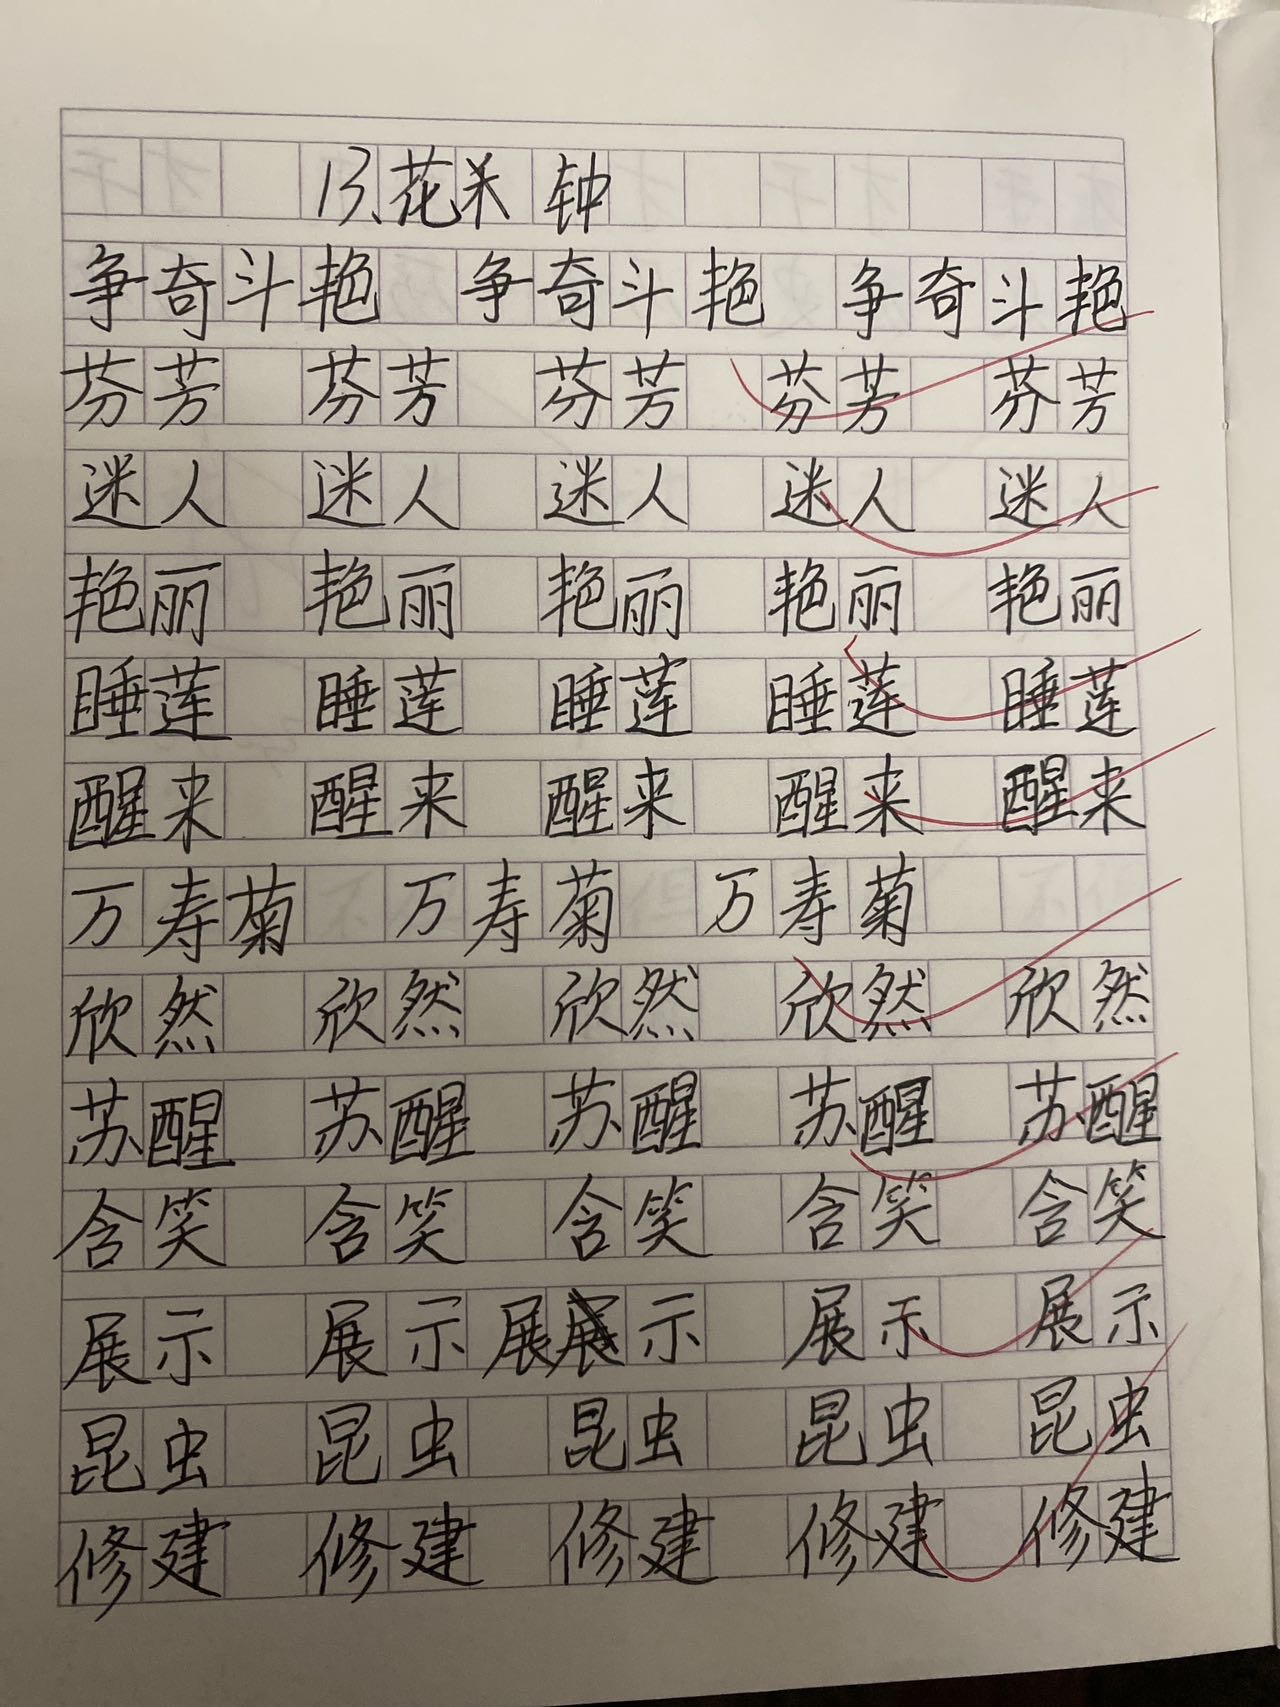 13、花 钟
争奇斗艳 争奇斗艳 争奇斗艳
芬芳 芬芳 芬芳 芬芳 芬芳
迷人 迷人 迷人 迷人 迷人
艳丽 艳丽 艳丽 艳丽 艳丽
睡莲 睡莲 睡莲 睡莲 睡莲
醒来 醒来 醒来 醒来 醒来
万寿菊 万寿菊 万寿菊
欣然 欣然 欣然 欣然 欣然
苏醒 苏醒 苏醒 苏醒 苏醒
含笑 含笑 含笑 含笑 含笑
展示 展示 展 示 展示 展示
昆虫 昆虫 昆虫 昆虫 昆虫
修建 修建 修建 修建 修建